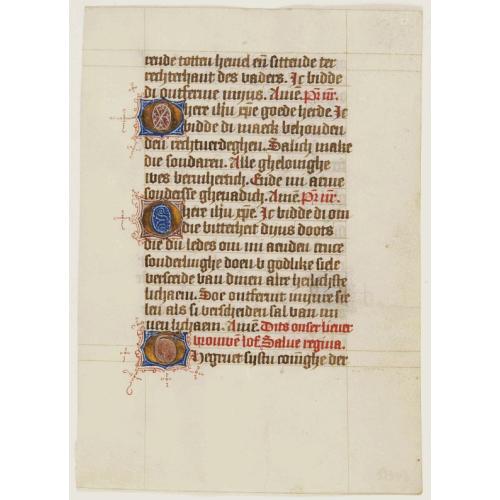 rende totten hemel eñ sittende ter
rechterhant des vaders. Ic bidde
di ontferme mijns. Amē. Pr̄ nr̄.
O here ih̄u xp̄e goede herde. Ic
bidde di maeck behouden
den rechtuerdeghen. Salich make
die sondaren. Alle ghelouighe
wes bermhertich. Ende mi arme
sondersse ghenadich. Amē. Pr̄ nr̄.
O here ih̄u xp̄e. Ic bidde di om
die bitterheit dijns doots
die du ledes om mi aenden cruce
sonderlinghe doen v godlike siele
verseide van dinen alre heilichste
lichaem. Soe ontfermt mijnre sie
len als si verscheiden sal van mi
nen lichaem. Amē. Dits onser lieuer
vrouwē lof. Salue regina.
Ghegruet sijstu conighe der